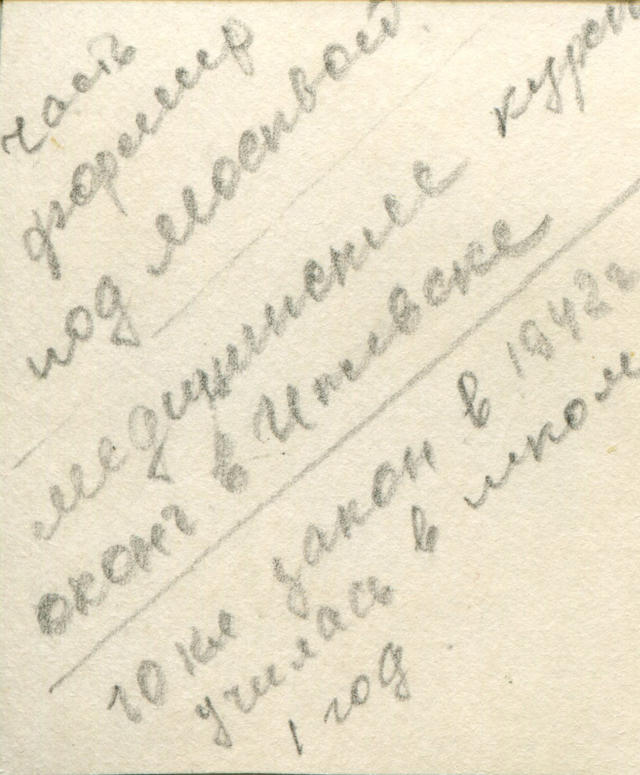 часть
формир
под Москвой.
медицинские
оконч в Ижевске
10 кл закон в 1942г
училась в школ
1 год